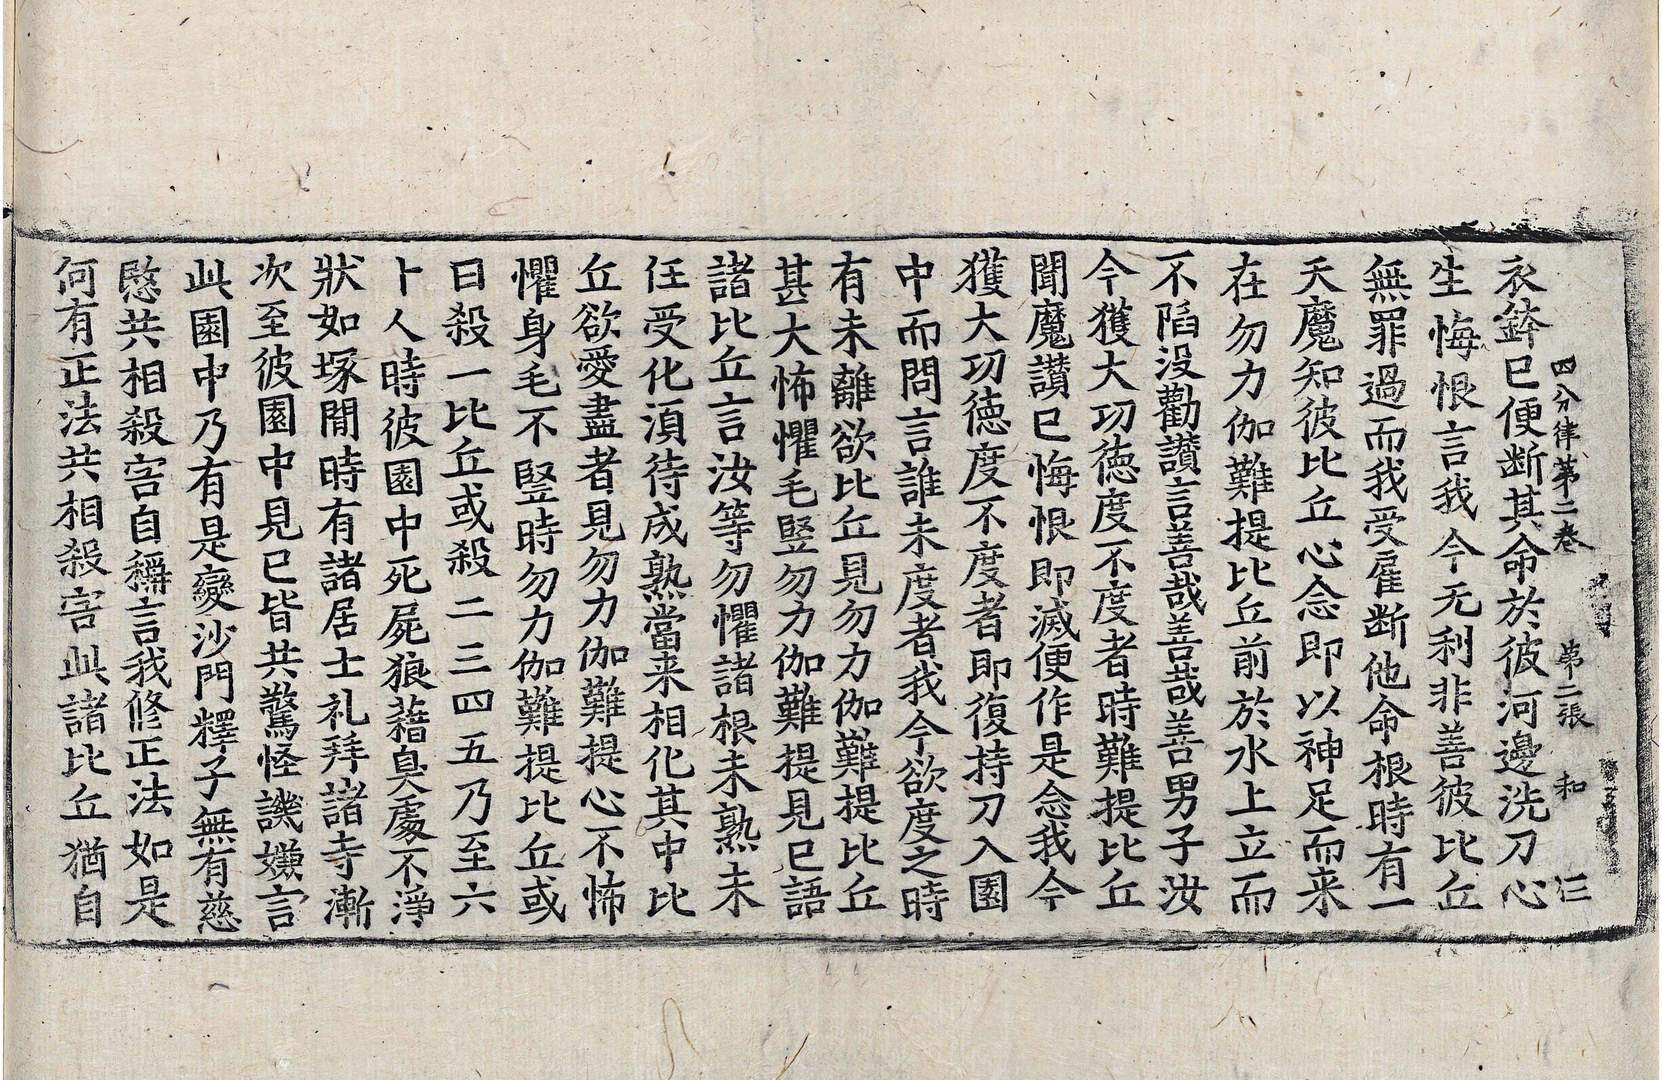 四分律第二卷 第二張 和
衣鉢已便斷其命於彼河邊洗刀心
生悔恨言我今无利非善彼比丘
無罪過而我受雇断他命根時有一
天魔知彼比丘心念即以神足而来
在勿力伽難提比丘前於水上立而
不陷没勸讃言善哉善哉善男子汝
今獲大功徳度不度者時難提比丘
聞魔讃已悔恨即滅便作是念我今
獲大功徳度不度者即復持刀入園
中而問言誰未度者我今欲度之時
有未離欲比丘見勿力伽難提比丘
甚大怖懼毛竪勿力伽難提見已語
諸比丘言汝等勿懼諸根未熟未
任受化湏待成熟當来相化其中比
丘欲愛盡者見勿力伽難提心不怖
懼身毛不竪時勿力伽難提比丘或
日殺一比丘或殺二三四五乃至六
十人時彼園中死屍狼藉臭處不淨
狀如塚間時有諸居士礼拜諸寺漸
次至彼園中見已皆共驚怪譏嫌言
此園中乃有是變沙門釋子無有慈
愍共相殺害自稱言我修正法如是
何有正法共相殺害此諸比丘猶自